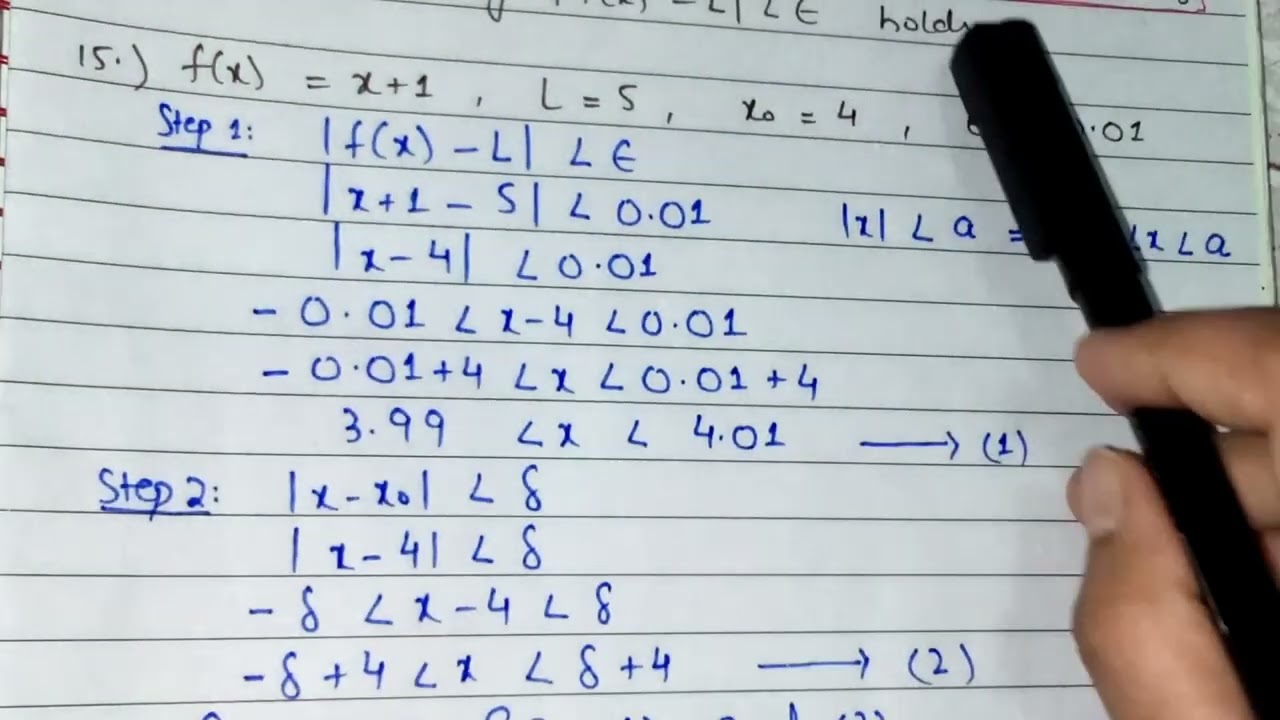 -L| < ϵ holds
15.) f(x) = x+1 , L = 5 , x₀ = 4 , 0.01
Step 1: |f(x) - L| < ϵ
|x+1 - 5| < 0.01 |x| < a = < x < a
|x - 4| < 0.01
- 0.01 < x-4 < 0.01
- 0.01+4 < x < 0.01 + 4
3.99 < x < 4.01 ⟶ (1)
Step 2: |x - x₀| < δ
|x - 4| < δ
- δ < x - 4 < δ
- δ + 4 < x < δ + 4 ⟶ (2)